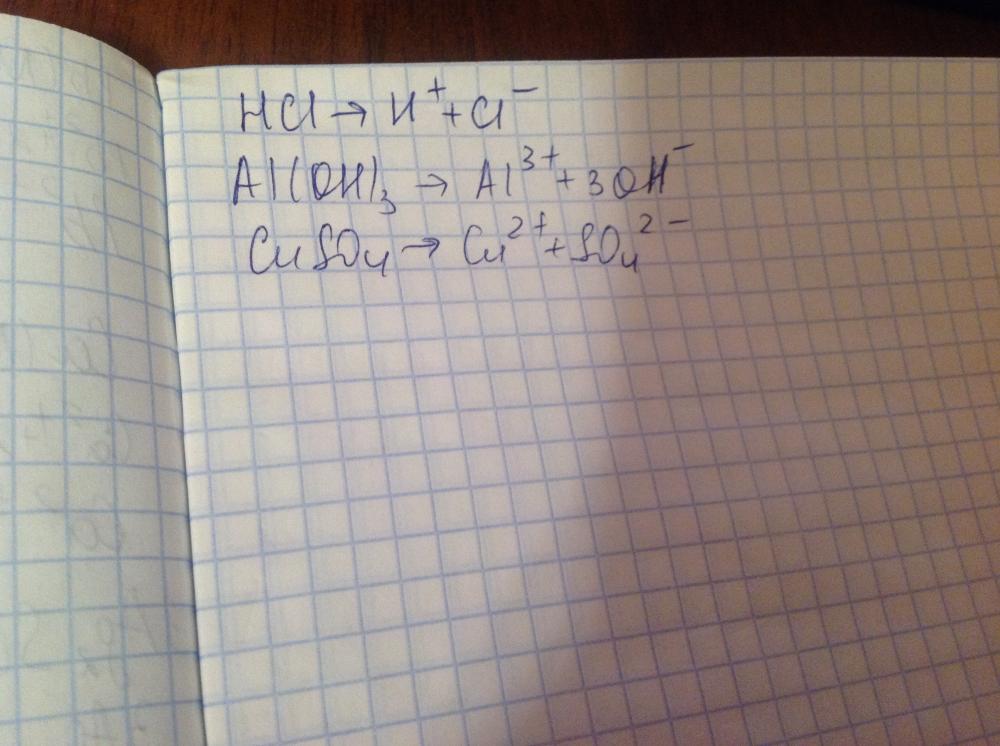 HCl → H⁺ + Cl⁻
Al(OH)₃ → Al³⁺ + 3OH⁻
CuSO₄ → Cu²⁺ + SO₄²⁻